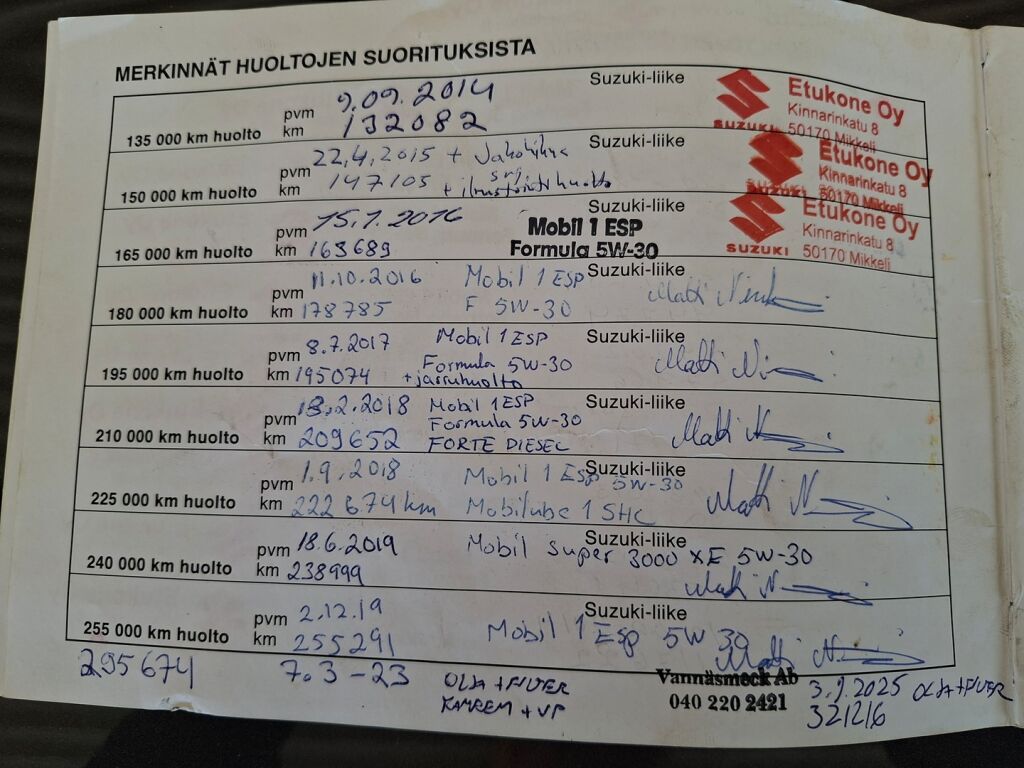 MERKINNÄT HUOLTOJEN SUORITUKSISTA
135 000 km huolto pvm 9.09.2014 Suzuki-liike
km 132082
SUZUKI Etukone Oy
Kinnarinkatu 8
50170 Mikkeli
150 000 km huolto pvm 22.4.2015 + Jakohihna Suzuki-liike
srj
km 147105 + ilmastointihuolto
SUZUKI Etukone Oy
Kinnarinkatu 8
50170 Mikkeli
165 000 km huolto pvm 15.1.2016 Suzuki-liike
km 163689 Mobil 1 ESP
Formula 5W-30
SUZUKI Etukone Oy
Kinnarinkatu 8
50170 Mikkeli
180 000 km huolto pvm 11.10.2016 Mobil 1 ESP Suzuki-liike
km 178785 F 5W-30 Matti
195 000 km huolto pvm 8.7.2017 Mobil 1 ESP Suzuki-liike
km 195074 Formula 5W-30 Matti
+ jarruhuolto
210 000 km huolto pvm 13.2.2018 Mobil 1 ESP Suzuki-liike
Formula 5W-30
km 209652 FORTE DIESEL Matti
225 000 km huolto pvm 1.9.2018 Mobil 1 ESP 5W-30 Suzuki-liike
km 222 674 km Mobilube 1 SHC Matti
240 000 km huolto pvm 18.6.2019 Mobil Super 3000 XE 5W-30 Suzuki-liike
km 238999 Matti
255 000 km huolto pvm 2.12.19 Suzuki-liike
km 255291 Mobil 1 Esp 5W 30 Matti
295674 7.3-23 OLJA+FILTER
KAMREM + VP
Vannäsmeck Ab
040 220 2421
3.9.2025 OLJA+FILTER
321216